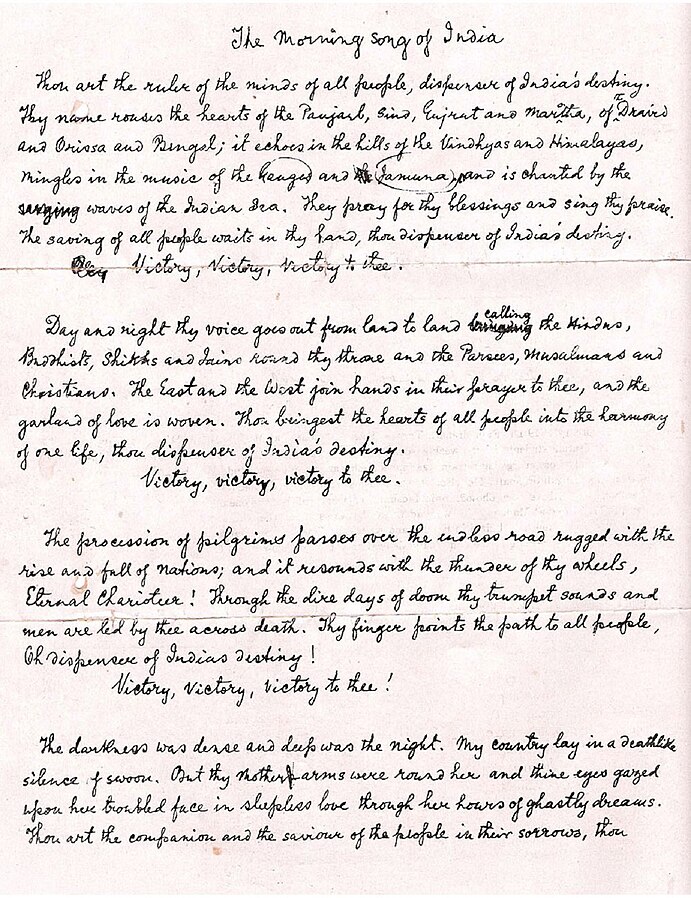 The Morning song of India
Thou art the ruler of the minds of all people, dispenser of India's destiny.
Thy name rouses the hearts of the Panjaub, Sind, Gujrat and Maratha, of Dravid
and Orissa and Bengal; it echoes in the hills of the Vindhyas and Himalayas,
mingles in the music of the Ganges and Jamuna and is chanted by the
waves of the Indian Sea. They pray for thy blessings and sing thy praise.
The saving of all people waits in thy hand, thou dispenser of India's destiny.
Victory, Victory, Victory to thee.
Day and night thy voice goes out from land to land calling the Hindus,
Buddhists, Shikhs and Jains round thy throne and the Parsees, Musalmans and
Christians. The East and the West join hands in their prayer to thee, and the
garland of love is woven. Thou bringest the hearts of all people into the harmony
of one life, thou dispenser of India's destiny.
Victory, victory, victory to thee.
The procession of pilgrims passes over the endless road rugged with the
rise and fall of nations; and it resounds with the thunder of thy wheels,
Eternal Charioteer! Through the dire days of doom thy trumpet sounds and
men are led by thee across death. Thy finger points the path to all people,
Oh dispenser of Indias destiny!
Victory, Victory, Victory to thee!
The darkness was dense and deep was the night. My country lay in a deathlike
silence of swoon. But thy mother arms were round her and thine eyes gazed
upon her troubled face in sleepless love through her hours of ghastly dreams.
Thou art the companion and the saviour of the people in their sorrows, thou